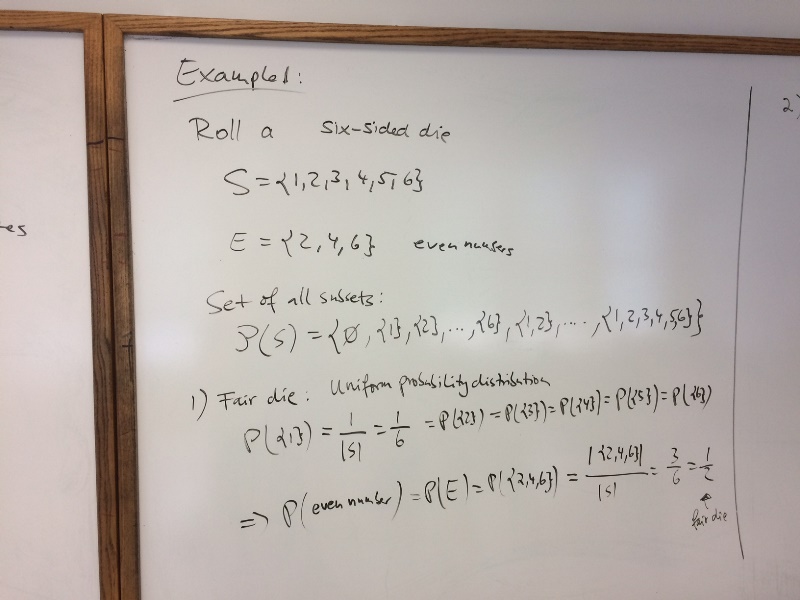 Example 1:
Roll a six-sided die
S = {1,2,3,4,5,6}
E = {2,4,6} even numbers
Set of all subsets:
P(S) = {∅, {1}, {2}, ..., {6}, {1,2}, ..., {1,2,3,4,5,6}}
1) Fair die: Uniform probability distribution
P({1}) = 1/|S| = 1/6 = P({2}) = P({3}) = P({4}) = P({5}) = P({6})
=> P(even number) = P(E) = P({2,4,6}) = |{2,4,6}|/|S| = 3/6 = 1/2
fair die
2)